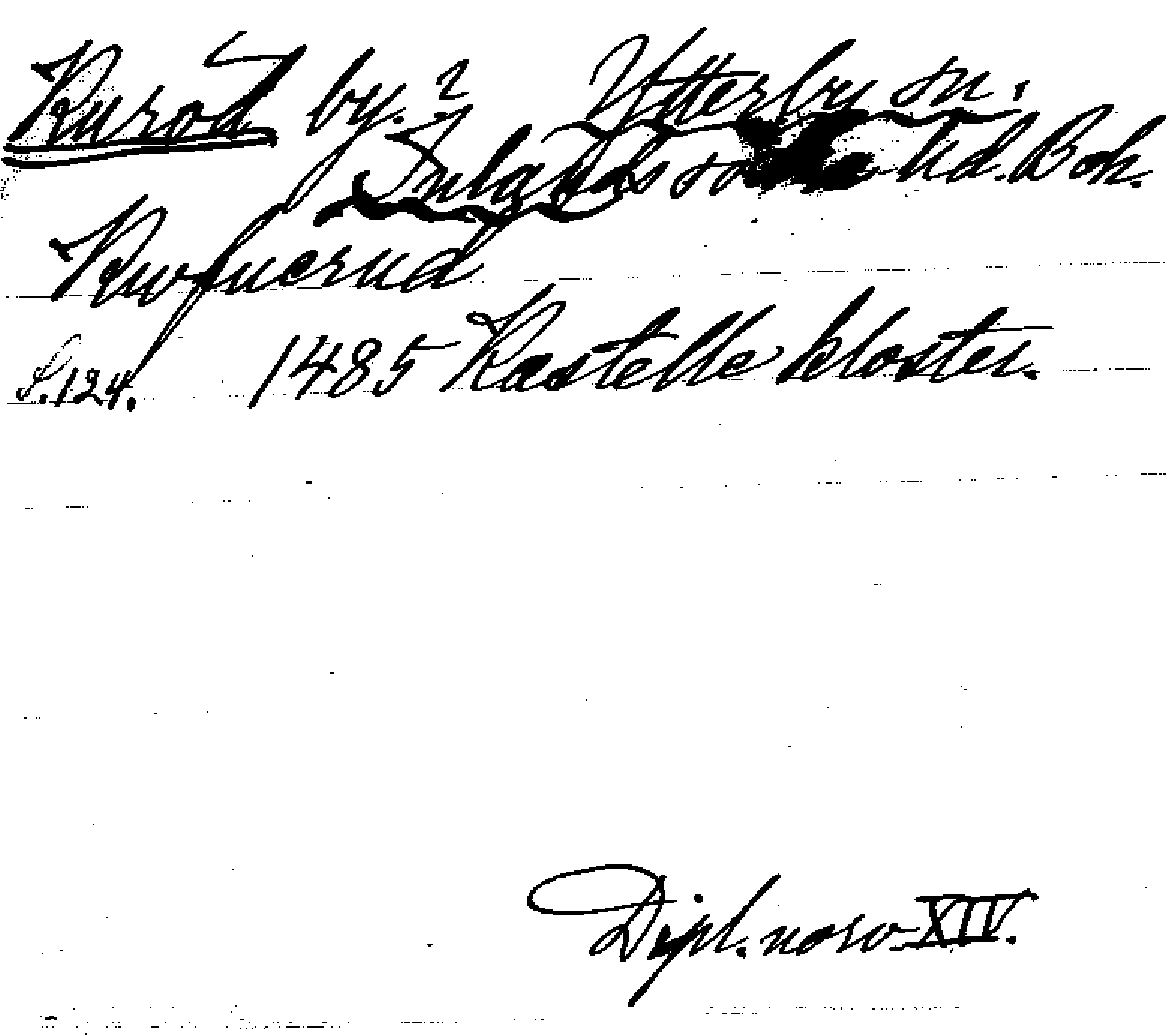 Kuröd by.? Ytterby sn.
Inlands sö hd. Boh.
Kwfuerud
S. 124. 1485 Kastelle kloster.
Dipl. norv. XIV.